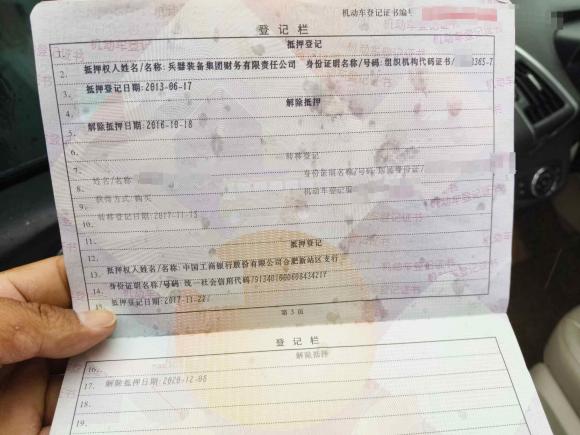 机动车登记证书编号
登记栏
1. 抵押登记
2. 抵押权人姓名/名称:兵器装备集团财务有限责任公司 身份证明名称/号码:组织机构代码证书/ 365-7
3. 抵押登记日期:2013-06-17
4. 解除抵押
5. 解除抵押日期:2016-10-18
6. 转移登记
7. 姓名/名称 身份证明名称/号码
8. 获得方式:购买 机动车登记
9. 转移登记日期:2017-11-15
10.
11. 抵押登记
12. 抵押权人姓名/名称:中国工商银行股份有限公司合肥新站区支行
13. 身份证明名称/号码:统一社会信用代码/
14. 抵押登记日期:2017-11-22
15.
第3页
登记栏
16. 解除抵押
17. 解除抵押日期:2020-12-08
18.
19.